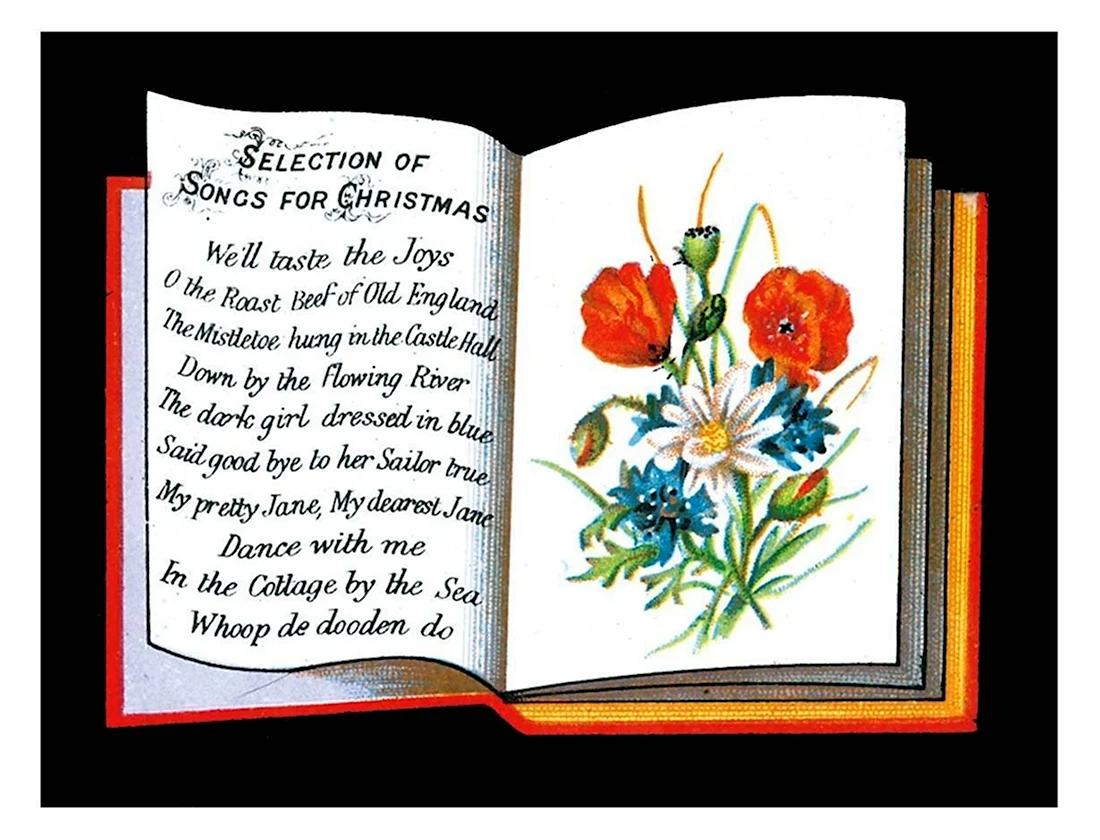 SELECTION OF
SONGS FOR CHRISTMAS
We'll taste the Joys
O the Roast Beef of Old England
The Mistletoe hung in the Castle Hall
Down by the Flowing River
The dark girl dressed in blue
Said good bye to her Sailor true
My pretty Jane, My dearest Jane
Dance with me
In the Cottage by the Sea
Whoop de dooden do